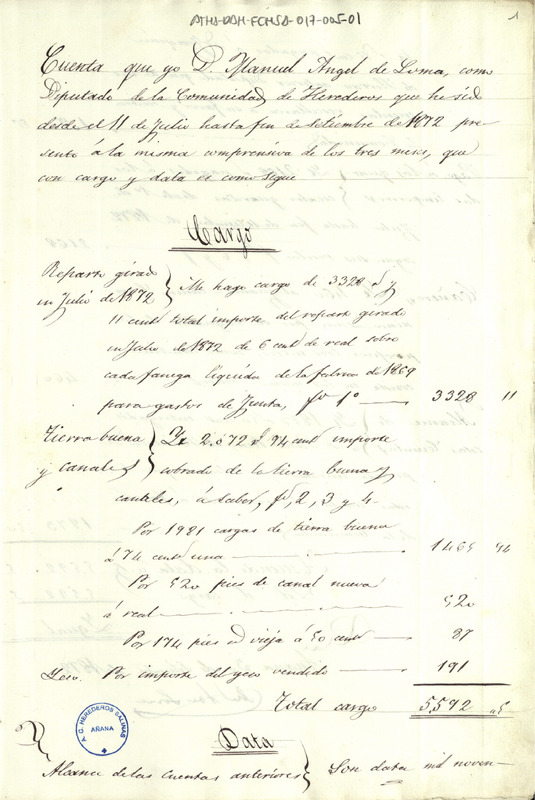 ATHA-DAH-FCMSA-017-005-01
1
Cuenta que yo D. Manuel Angel de Loma, como
Diputado de la Comunidad de Herederos que he sido
desde el 11 de Julio hasta fin de Setiembre de 1872 pre
sento á la misma comprensiva de los tres meses, que
con cargo y data es como sigue
Cargo
Reparto girado
en Julio de 1872
Me hago cargo de 3328 y
11 cent total importe del reparto girado
en Julio de 1872 de 6 cent de real sobre
cada fanega liquida de la fabrica de 1869
para gastos de Junta, fº 1º 3328 11
Tierra buena
y canales
2.072 94 cent importe
cobrado de la tierra buena y
canales, á saber, fº, 2, 3 y 4
Por 1981 cargas de tierra buena
á 74 cent una 1465 94
Por 520 pies de canal nueva
á real 520
Por 174 pies id vieja á 50 cent 87
Yeso. Por importe del yeso vendido 191
Total cargo 5592 05
A. C. HEREDEROS SALINAS
AÑANA
Data
Alcance de las cuentas anteriores
Son data mil noven-